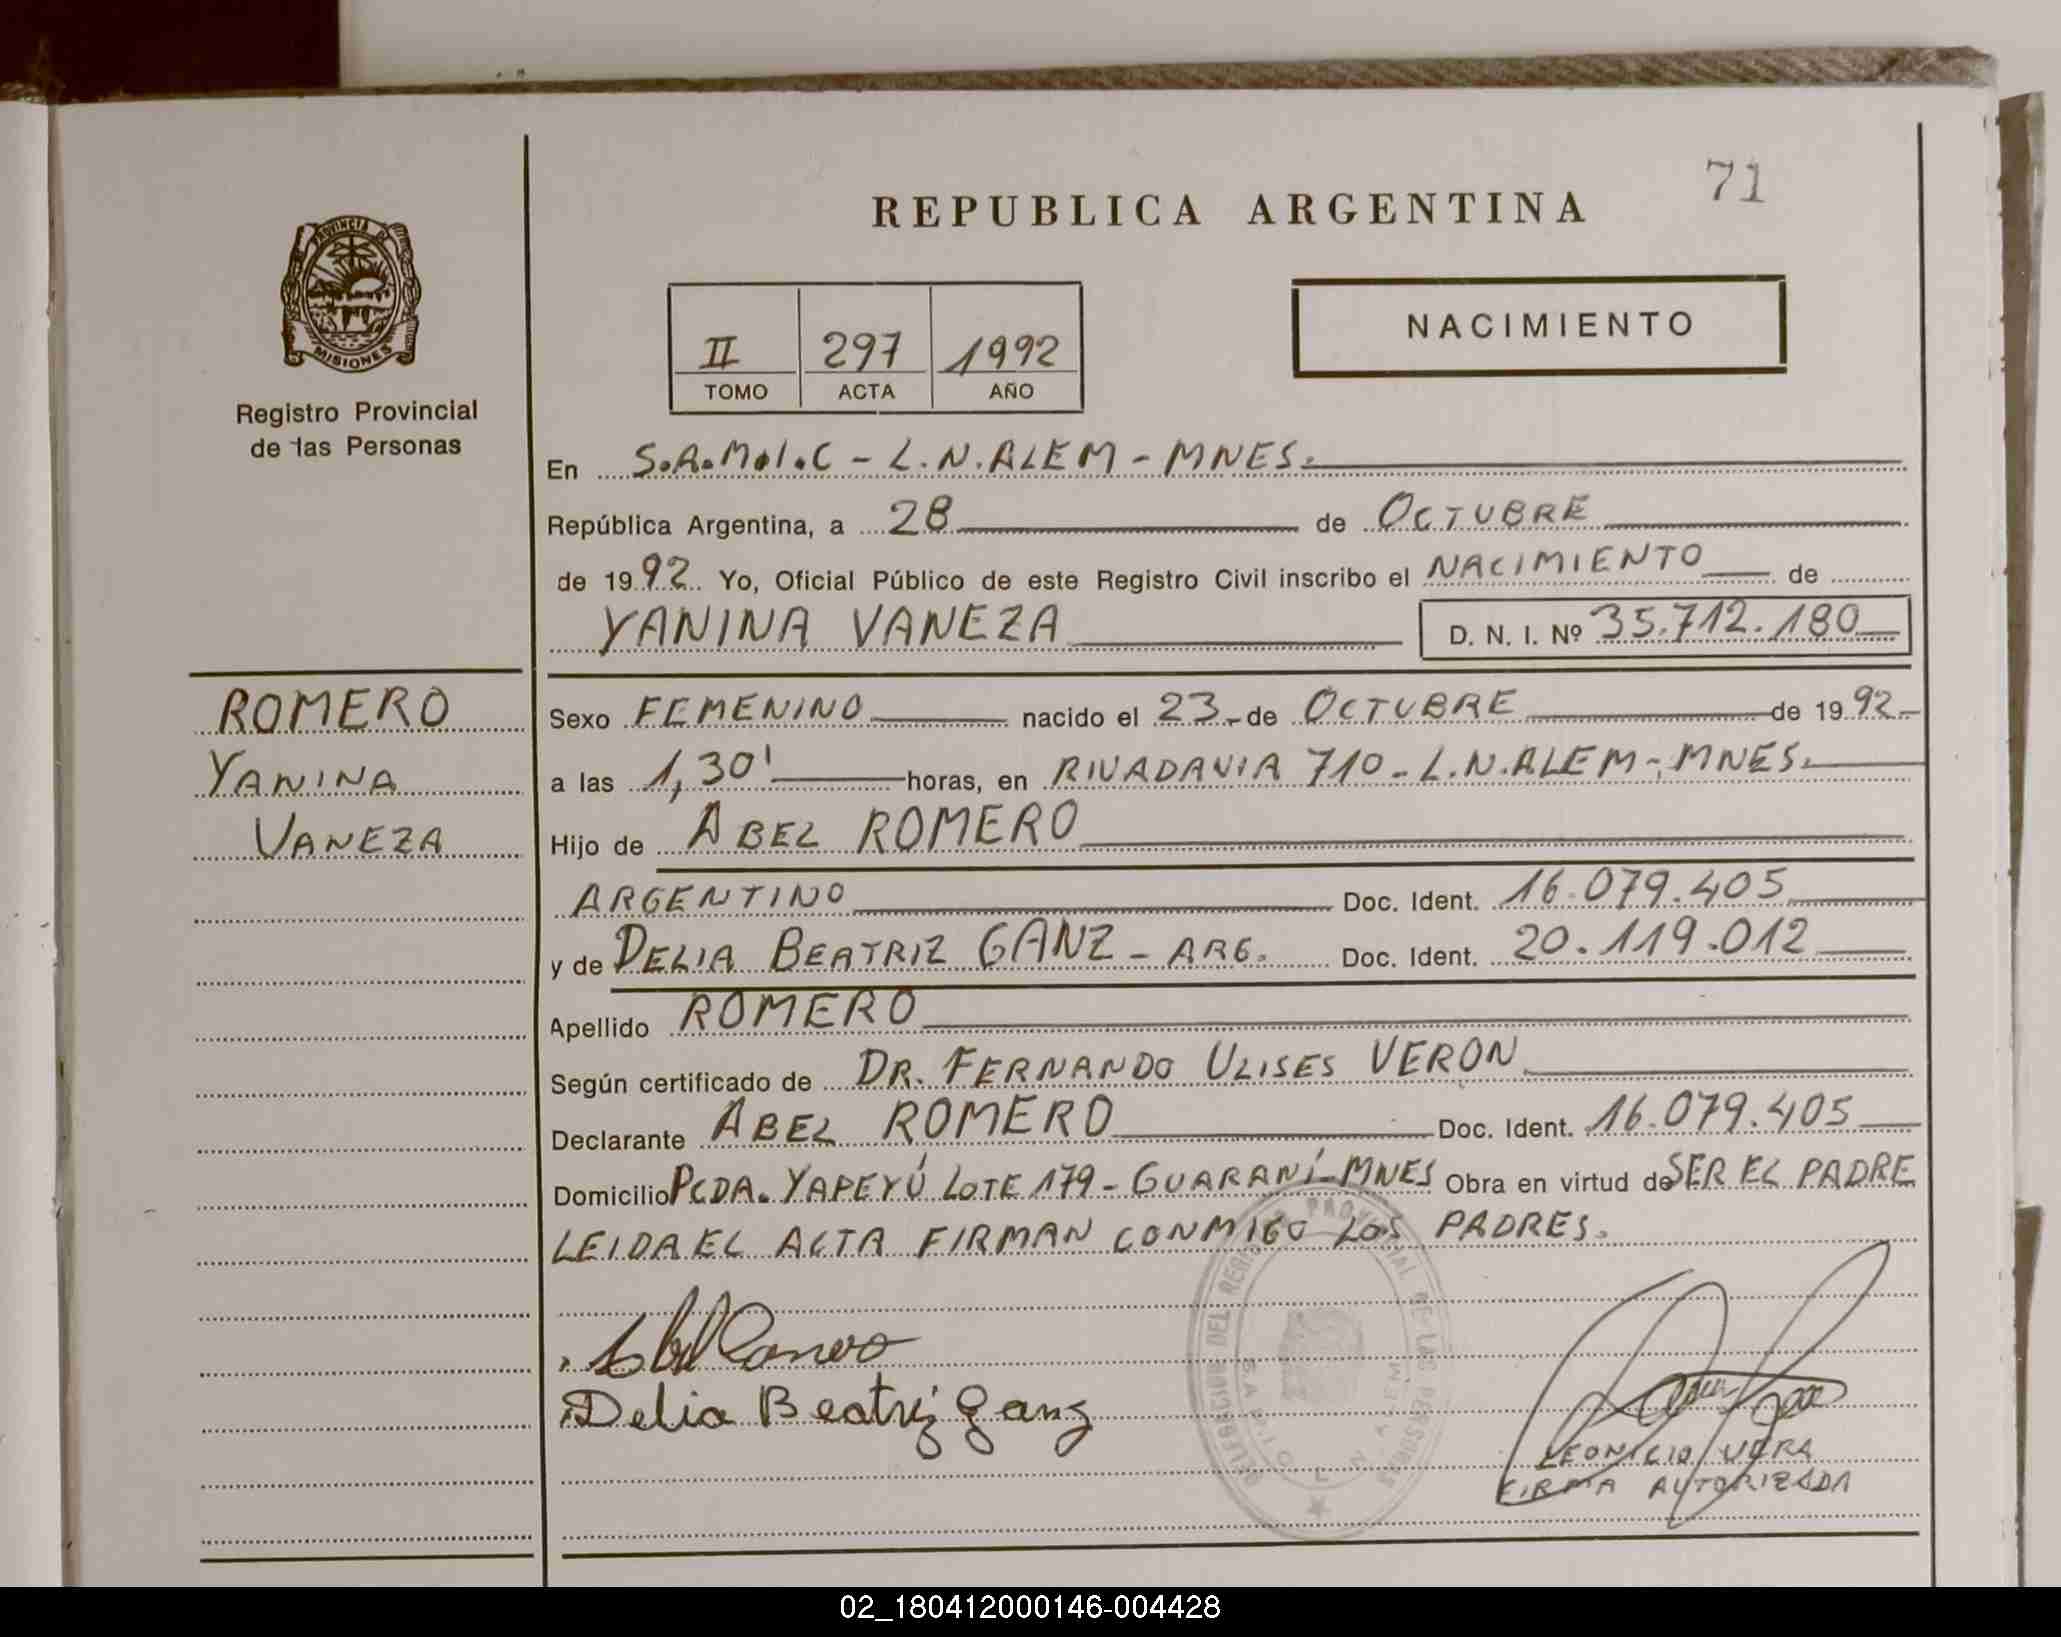 71
REPUBLICA ARGENTINA
PROVINCIA DE
MISIONES
Registro Provincial
de las Personas
II 297 1992
TOMO ACTA AÑO
NACIMIENTO
En S.A.M.I.C - L.N.ALEM - MNES.
República Argentina, a 28 de OCTUBRE
de 1992 Yo, Oficial Público de este Registro Civil inscribo el NACIMIENTO de
YANINA VANEZA D. N. I. Nº 35.712.180
ROMERO
YANINA
VANEZA
Sexo FEMENINO nacido el 23 de OCTUBRE de 1992
a las 1,30' horas, en RIVADAVIA 710 - L.N.ALEM - MNES.
Hijo de ABEL ROMERO
ARGENTINO Doc. Ident. 16.079.405
y de DELIA BEATRIZ GANZ - ARG. Doc. Ident. 20.119.012
Apellido ROMERO
Según certificado de DR. FERNANDO ULISES VERON
Declarante ABEL ROMERO Doc. Ident. 16.079.405
Domicilio PCDA. YAPEYÚ LOTE 179 - GUARANÍ - MNES Obra en virtud de SER EL PADRE
LEIDA EL ACTA FIRMAN CONMIGO LOS PADRES.
Abel Romero
Delia Beatriz Ganz
LEONICIO VERA
FIRMA AUTORIZADA
02_180412000146-004428